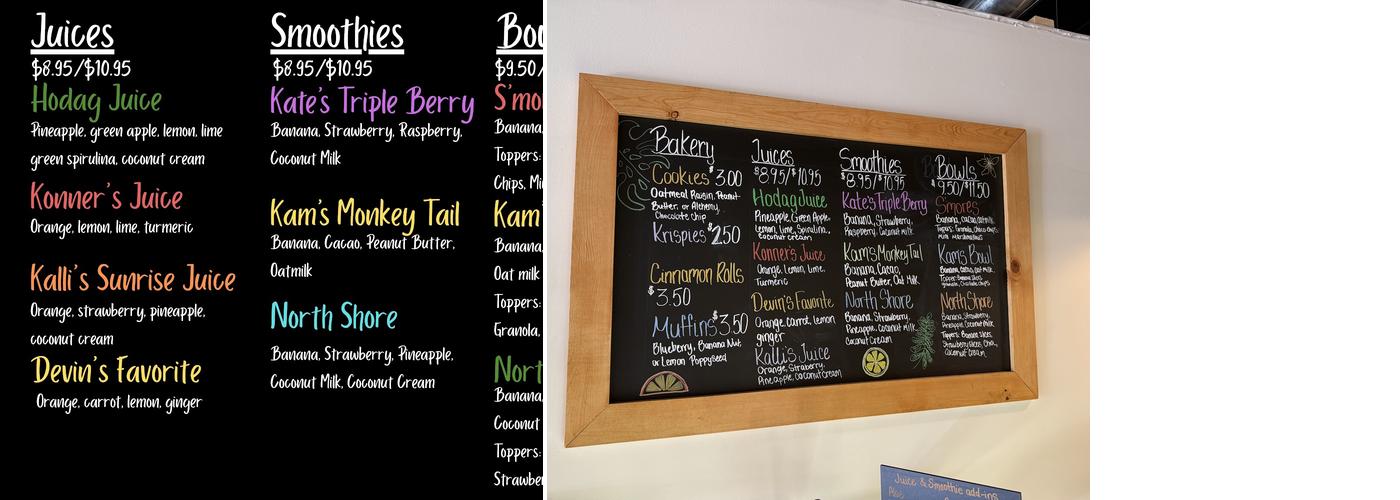 Juices
$8.95/$10.95
Hodag Juice
Pineapple, green apple, lemon, lime
green spirulina, coconut cream
Konner's Juice
Orange, lemon, lime, turmeric
Kalli's Sunrise Juice
Orange, strawberry, pineapple,
coconut cream
Devin's Favorite
Orange, carrot, lemon, ginger
Smoothies
$8.95/$10.95
Kate's Triple Berry
Banana, Strawberry, Raspberry,
Coconut Milk
Kam's Monkey Tail
Banana, Cacao, Peanut Butter,
Oatmilk
North Shore
Banana, Strawberry, Pineapple,
Coconut Milk, Coconut Cream
Bo
$9.50/
S'mo
Banana,
Toppers:
Chips, Mi
Kam'
Banana,
Oat milk
Toppers:
Granola,
Nort
Banana,
Coconut
Toppers:
Strawber
Bakery
Cookies $3.00
Oatmeal Raisin, Peanut
Butter, or Alchemy
Chocolate Chip
Krispies $2.50
Cinnamon Rolls
$3.50
Muffins $3.50
Blueberry, Banana Nut
or Lemon Poppyseed
Juices
$8.95/$10.95
Hodag Juice
Pineapple, Green Apple,
Lemon, Lime, Spirulina,
Coconut cream
Konner's Juice
Orange, Lemon, Lime,
Turmeric
Devin's Favorite
Orange, carrot, lemon
ginger
Kalli's Juice
Orange, Straberry,
Pineapple, coconut cream
Smoothies
$8.95/$10.95
Kate's Triple Berry
Banana, Strawberry,
Raspberry, Coconut milk
Kam's Monkey Tail
Banana, Cacao,
Peanut Butter, Oat Milk
North Shore
Banana, Strawberry,
Pineapple, Coconut milk
Coconut Cream
Bowls
$9.50/$11.50
S'mores
Banana, cacao, oatmilk
Topers: Granola, Choco Chips
Mini Marshmallows
Kam's Bowl
Banana, Cacao, Oat milk
Topper: Banana slices,
granola, Chocolate chips
North Shore
Banana, Strawberry,
Pineapple, Coconut Milk
Toppers: Banana slices,
Strawberry slices, Chia,
Coconut Cream
Juice & Smoothie add-ins